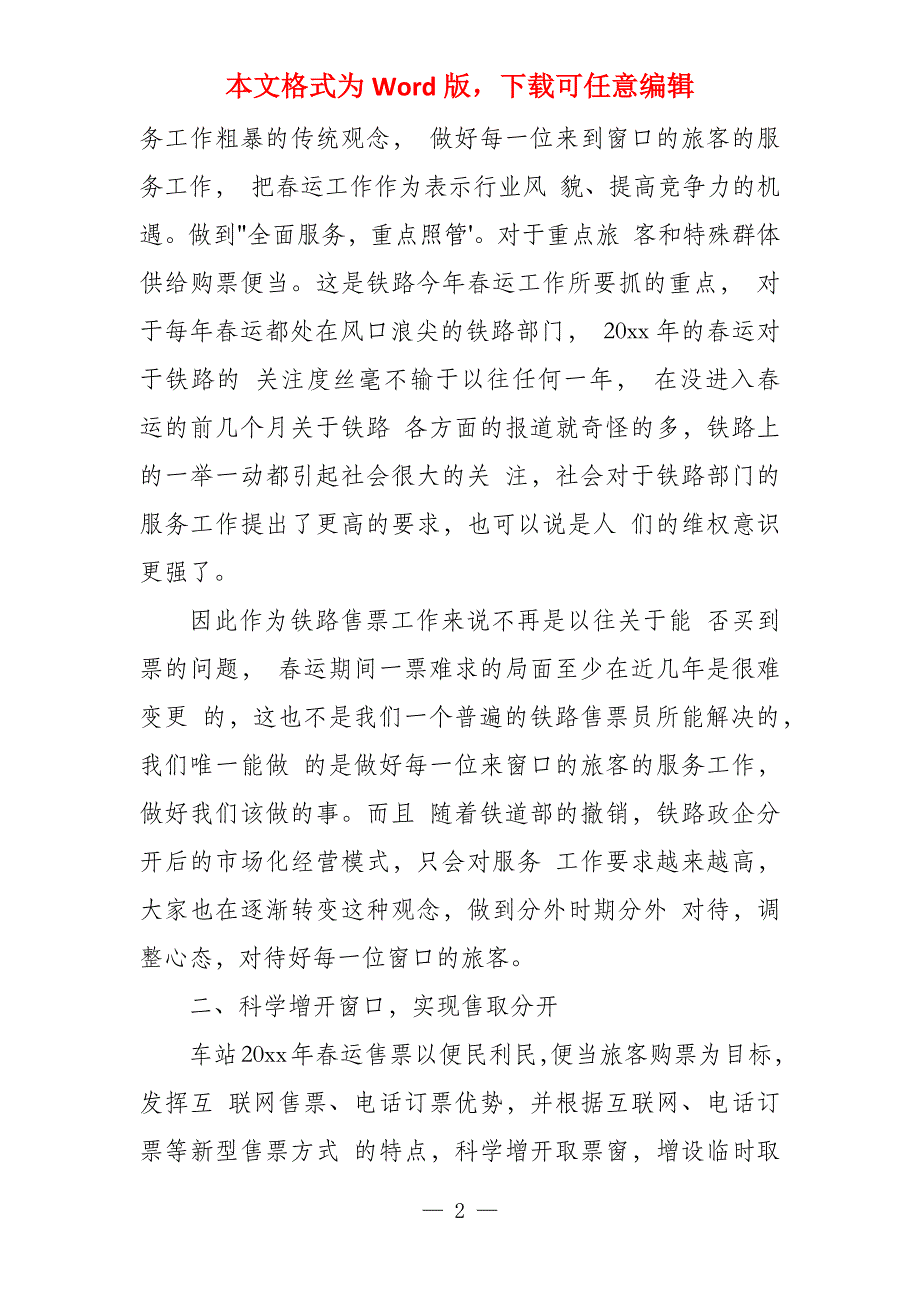 本文格式为 Word 版，下载可任意编辑
务工作粗暴的传统观念， 做好每一位来到窗口的旅客的服
务工作， 把春运工作作为表示行业风 貌、提高竞争力的机
遇。做到"全面服务，重点照管'。对于重点旅 客和特殊群体
供给购票便当。这是铁路今年春运工作所要抓的重点， 对
于每年春运都处在风口浪尖的铁路部门， 20xx 年的春运对
于铁路的 关注度丝毫不输于以往任何一年， 在没进入春
运的前几个月关于铁路 各方面的报道就奇怪的多，铁路上
的一举一动都引起社会很大的关 注，社会对于铁路部门的
服务工作提出了更高的要求，也可以说是人 们的维权意识
更强了。
因此作为铁路售票工作来说不再是以往关于能 否买到
票的问题， 春运期间一票难求的局面至少在近几年是很难
变更 的，这也不是我们一个普遍的铁路售票员所能解决的，
我们唯一能做 的是做好每一位来窗口的旅客的服务工作，
做好我们该做的事。而且 随着铁道部的撤销，铁路政企分
开后的市场化经营模式，只会对服务 工作要求越来越高，
大家也在逐渐转变这种观念，做到分外时期分外 对待，调
整心态，对待好每一位窗口的旅客。
二、科学增开窗口，实现售取分开
车站 20xx 年春运售票以便民利民，便当旅客购票为目标，
发挥互 联网售票、电话订票优势，并根据互联网、电话订
票等新型售票方式 的特点，科学增开取票窗，增设临时取
— 2 —